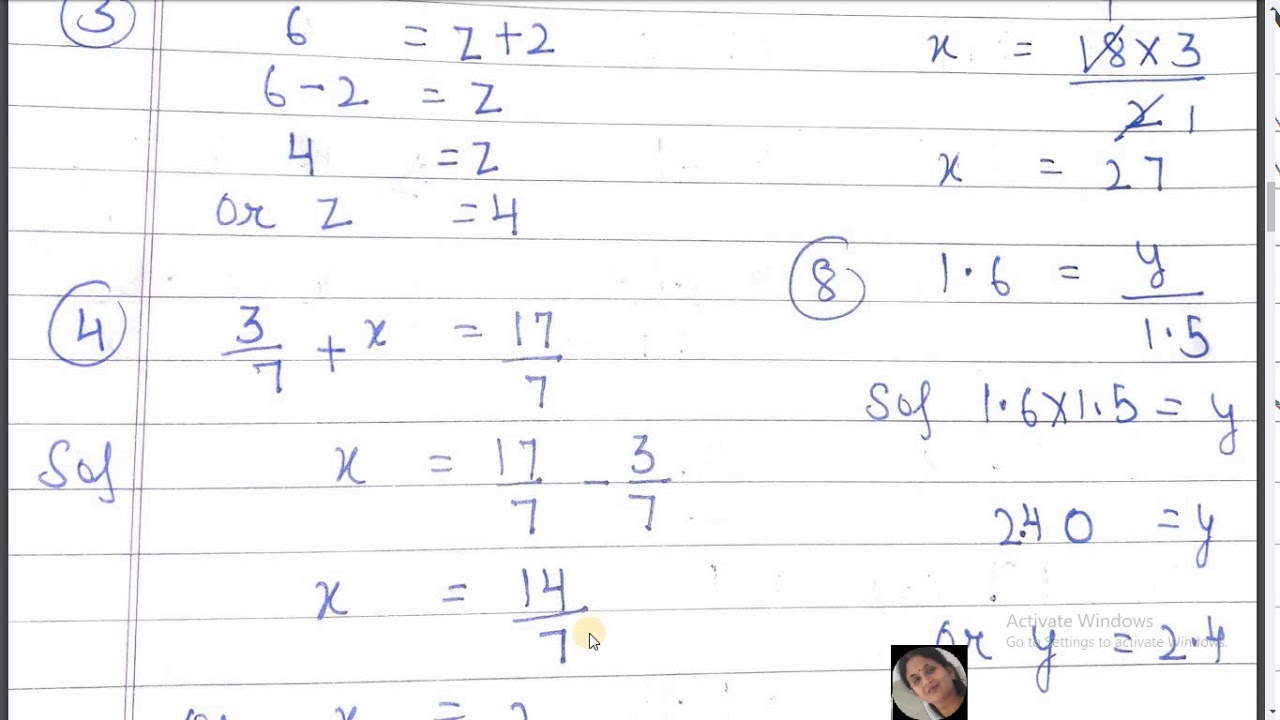 3 6 = z + 2
6 - 2 = z
4 = z
or z = 4
4 3/7 + x = 17/7
Sol x = 17/7 - 3/7
x = 14/7
or x = 2
x = 18 × 3 / 2 1
x = 27
8 1.6 = y/1.5
Sol 1.6 × 1.5 = y
2.40 = y
or y = 2.4
Activate Windows
Go to Settings to activate Windows.